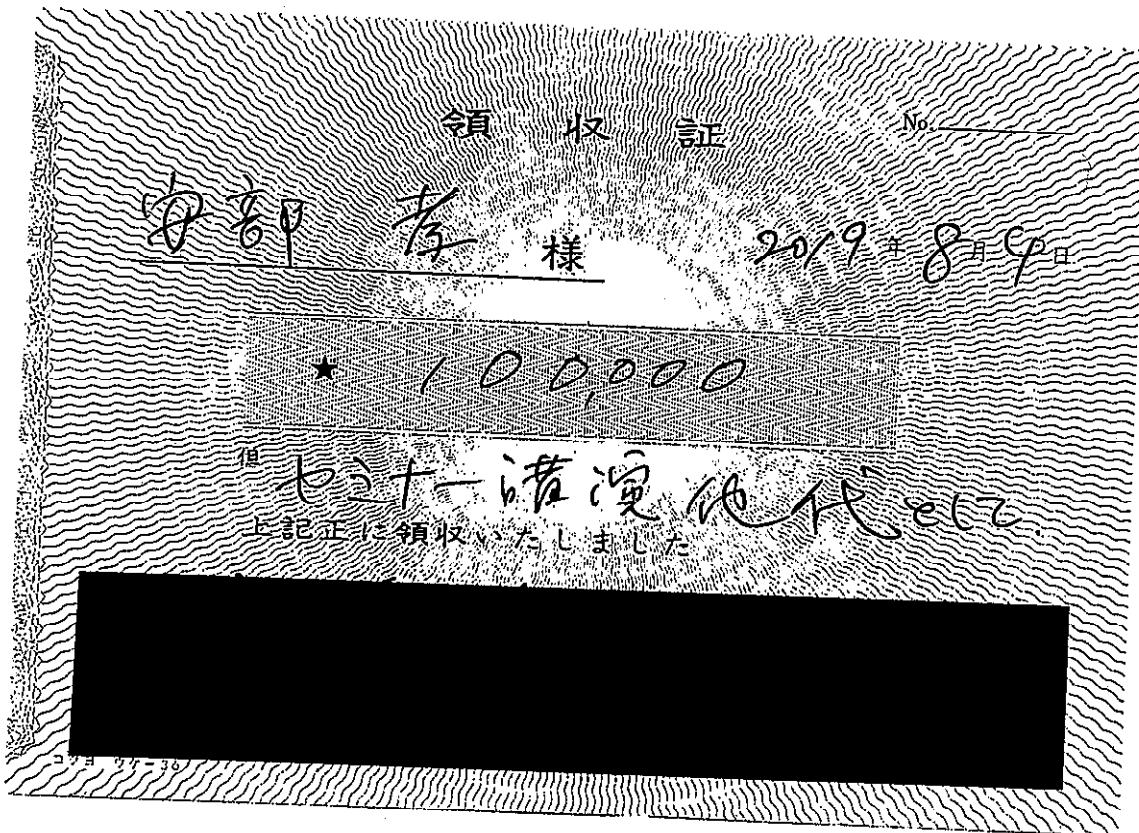 領収証 No.
安部 孝 様 2019年8月4日
★ 100,000
但 セミナー講演他代として
上記正に領収いたしました
コクヨ ウケ-36